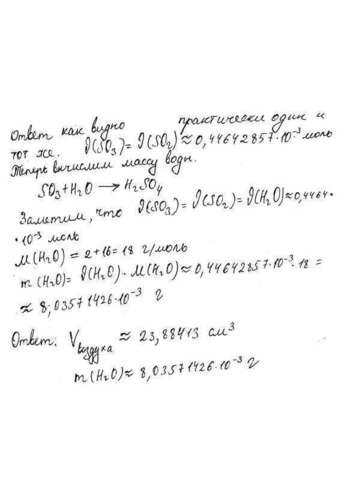 Ответ как видно практически один и
тот же. ϑ(SO₃) = ϑ(SO₂) ≈ 0,44642857·10⁻³ моль
Теперь вычислим массу воды.
SO₃ + H₂O → H₂SO₄
Заметим, что ϑ(SO₃) = ϑ(SO₂) = ϑ(H₂O) ≈ 0,4464·
·10⁻³ моль
M(H₂O) = 2+16 = 18 г/моль
m(H₂O) = ϑ(H₂O)·M(H₂O) ≈ 0,44642857·10⁻³·18 =
≈ 8,03571426·10⁻³ г
Ответ: Vвоздуха ≈ 23,88413 см³
m(H₂O) ≈ 8,03571426·10⁻³ г